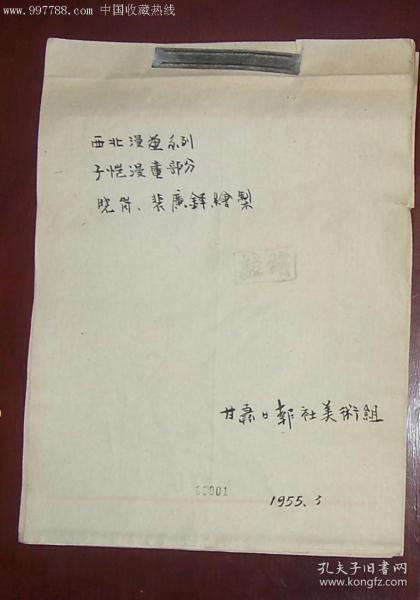 www.997788.com 中国收藏热线
西北漫画系列
子恺漫画部分
晓岗、裴廣铎繪製
甘肃日報社美術組
00001
1955.3
孔夫子旧书网
www.kongfz.com